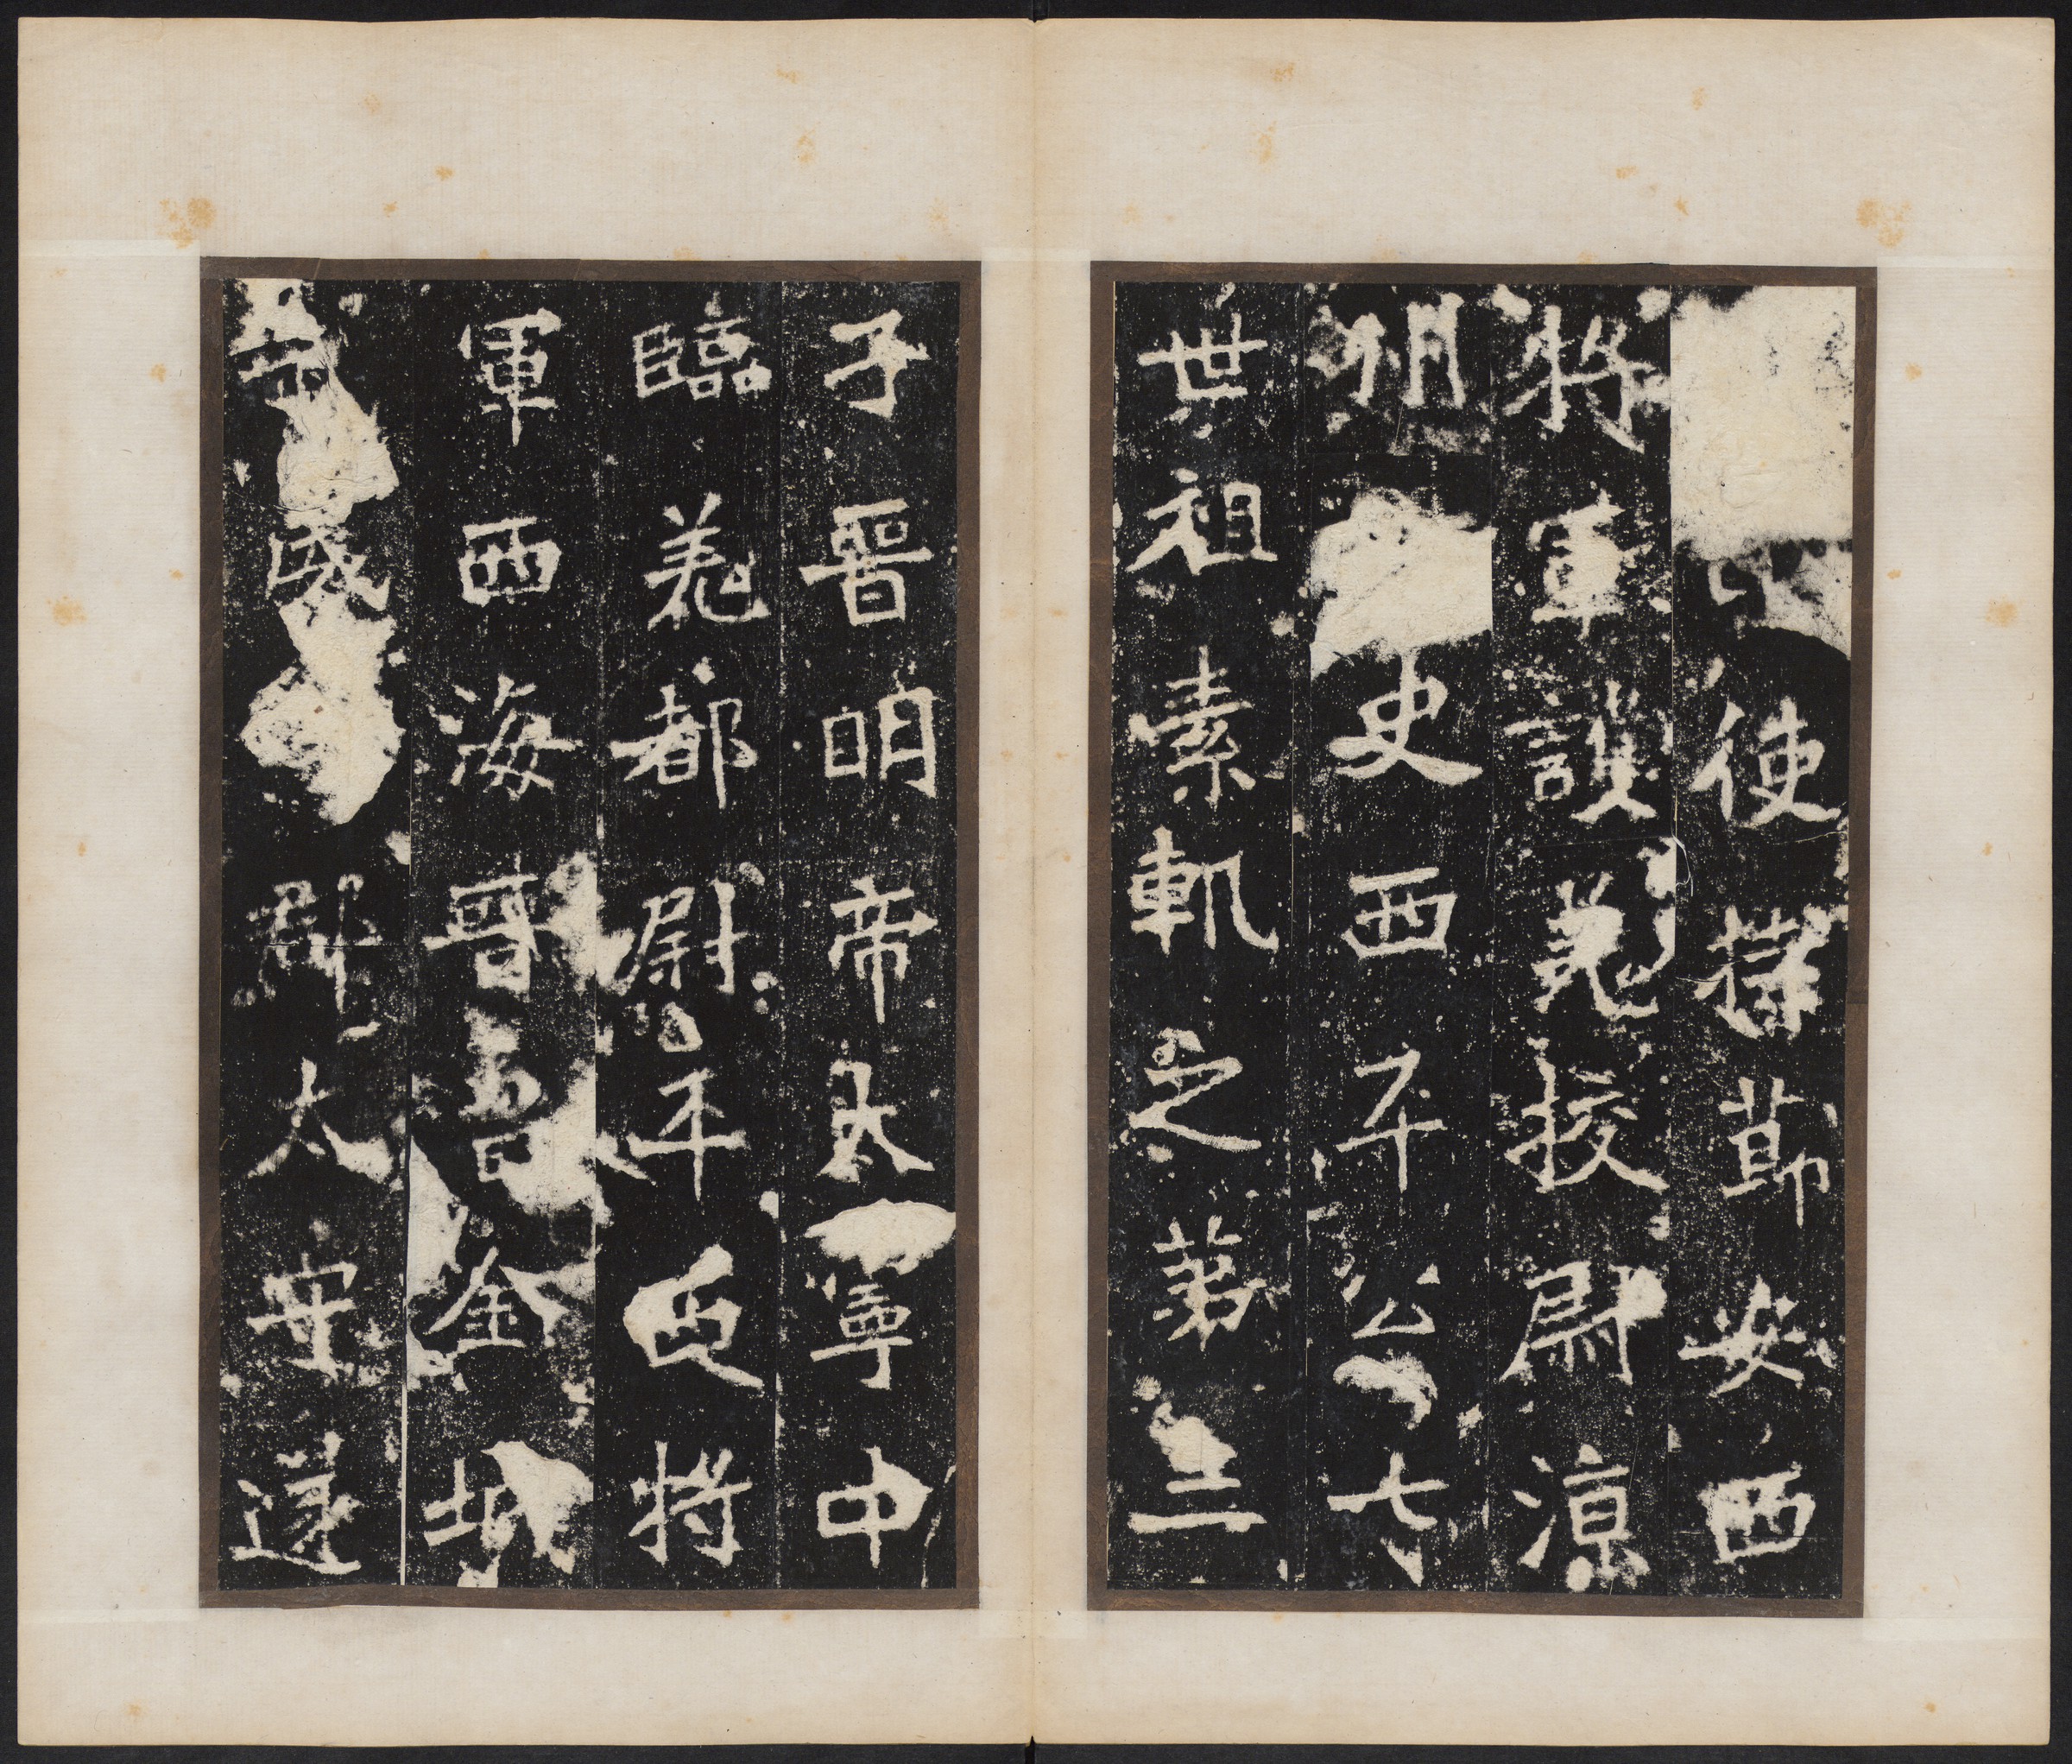 使持節安西
將軍護羌校尉涼
州史西平公七
世祖素軌之第三
子晉明帝太寧中
臨羌都尉平西將
軍西海晉昌金城
威郡太守遂